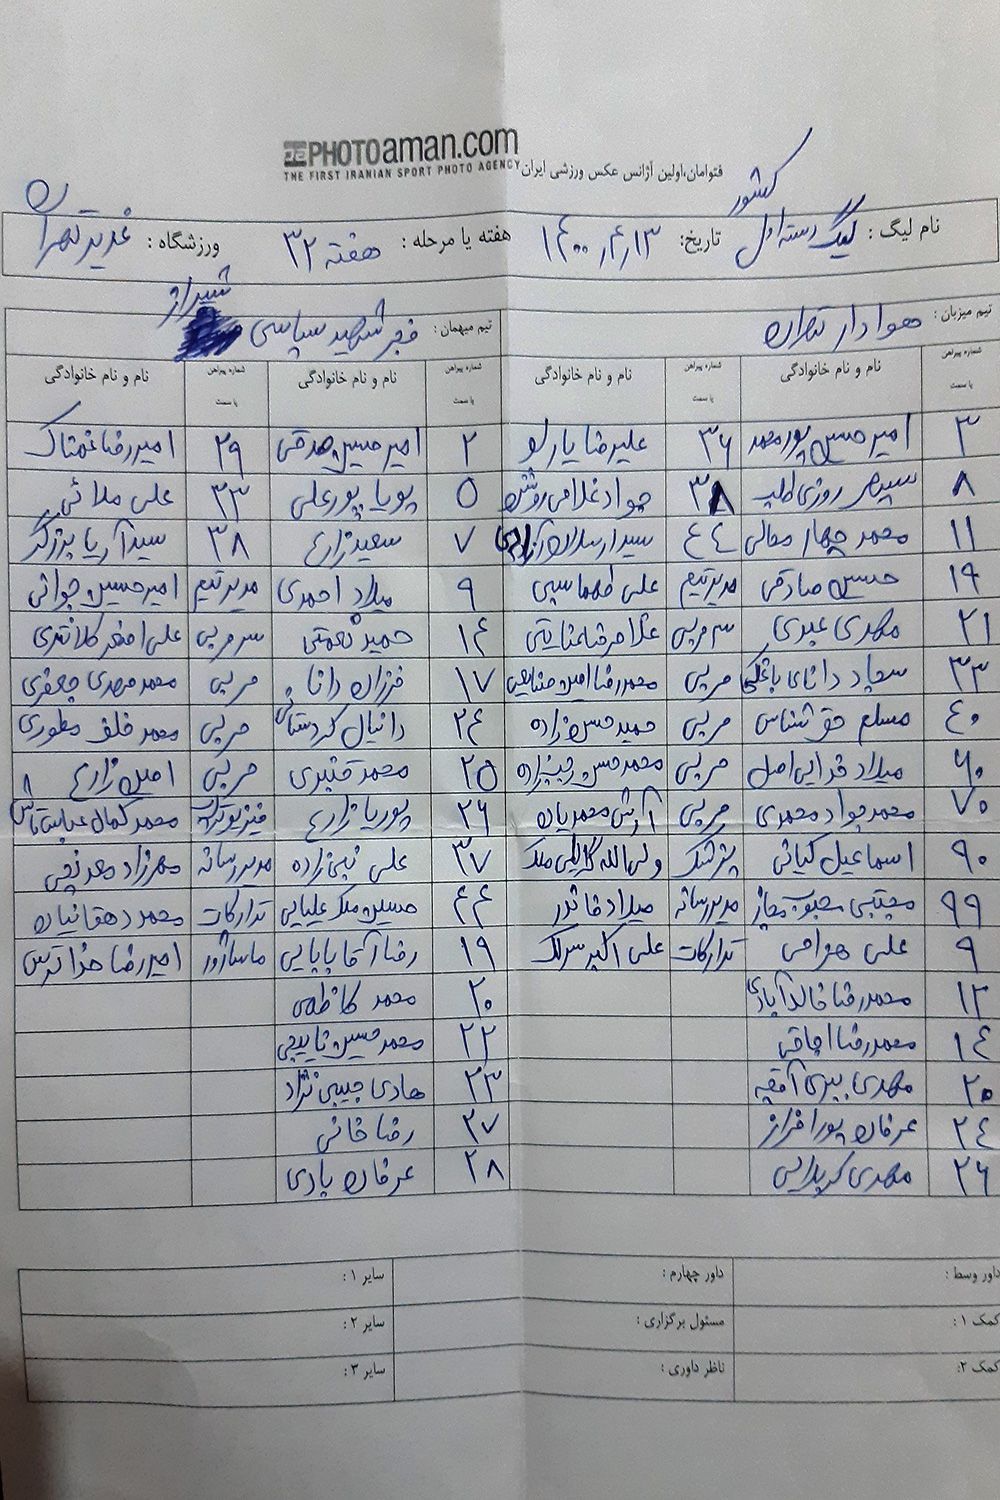 PHOTOaman.com
THE FIRST IRANIAN SPORT PHOTO AGENCY
فتوامان،اولین آژانس عکس ورزشی ایران
نام لیگ : لیگ دسته اول کشور تاریخ: ۱۴۰۰٫۴٫۱۳ هفته یا مرحله : هفته ۳۲ ورزشگاه : غدیر تهران
تیم میزبان : هوادار تهران تیم میهمان : فجر شهید سپاسی شیراز
شماره پیراهن یا سمت نام و نام خانوادگی شماره پیراهن یا سمت نام و نام خانوادگی شماره پیراهن یا سمت نام و نام خانوادگی شماره پیراهن یا سمت نام و نام خانوادگی
۳ امیرحسین پورمحمد ۳۶ علیرضا یارلو ۲ امیرحسین صدقی ۲۹ امیررضا غمناک
۸ سپهر روزی طلب ۳۸ جواد غلامی روش ۵ پویا پورعلی ۳۳ علی ملائی
۱۱ محمد چهار محالی ۴۴ سید ارسلان ۷ سعید زارع ۳۸ سیدآریا برزگر
۱۹ حسین صادقی مدیر تیم علی طهماسبی ۹ میلاد احمدی مدیر تیم امیرحسین جوانی
۲۱ مهدی عبدی سرمربی غلامرضا عنایتی ۱۴ حمید نعمتی سرمربی علی اصغر کلانتری
۳۳ سجاد دانای مربی محمدرضا امین ۱۷ فرزان دانا مربی محمد مهدی جعفری
۴۰ مسلم حق شناس مربی حمید حسن زاده ۲۴ دانیال کردستانی مربی محمد خلف مطوری
۶۰ میلاد فدایی اصل مربی محمد حسن رجب زاده ۲۵ محمد قنبری مربی امین زارع
۷۰ محمد جواد محمدی مربی آرش محمدیان ۲۶ پوریا زارع فیزیوتراپ محمد کمال
۹۰ اسماعیل کیانی پزشک ولی الله ملک ۳۷ علی نبی زاده مدیر رسانه مهرزاد معدنچی
۹۹ مجتبی محبوب مجاز مدیر رسانه میلاد خانور ۴۴ حسین ملک علیایی تدارکات محمد دهقانیان
۹ علی هوامی تدارکات علی اکبر سرلک ۱۹ رضا آقا بابایی ماساژور امیررضا خداترس
۱۲ محمدرضا خالدآبادی ۲۰ محمد کاظمی
۱۴ محمدرضا اجاقی ۲۲ محمد حسین نایبچی
۲۰ مهدی ببری آقچه ۲۳ هادی حبیبی نژاد
۲۴ عرفان پورافراز ۲۷ رضا خانی
۲۶ مهدی کربلایی ۲۸ عرفان یادی
داور وسط : داور چهارم : سایر ۱ :
کمک ۱ : مسئول برگزاری : سایر ۲ :
کمک ۲: ناظر داوری : سایر ۳ :